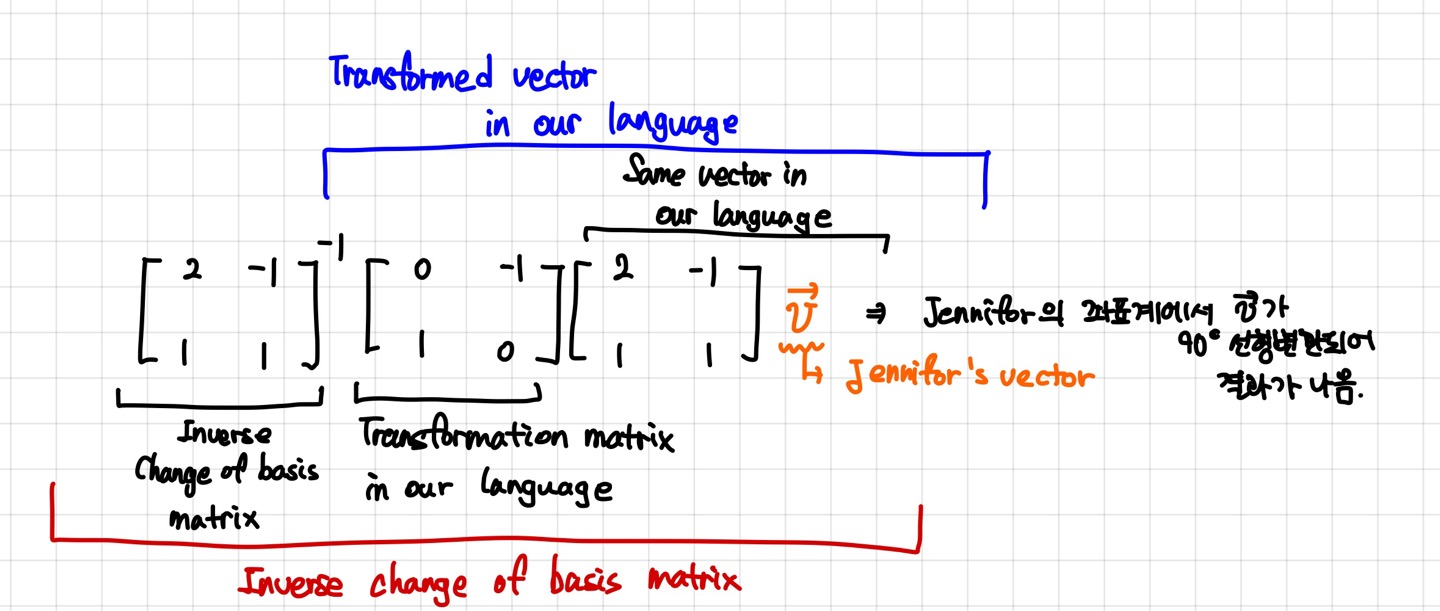 Transformed vector
in our language
Same vector in
our language
[2 -1]⁻¹ [0 -1] [2 -1]
[1 1] [1 0] [1 1]
v⃗ ⇒ Jennifor의 좌표계에서 v⃗가
90° 선형변환되어
결과가 나옴.
↳ Jennifor's vector
Inverse
Change of basis
matrix
Transformation matrix
in our language
Inverse change of basis matrix